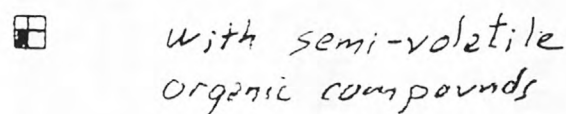 with semi-volatile
organic compounds